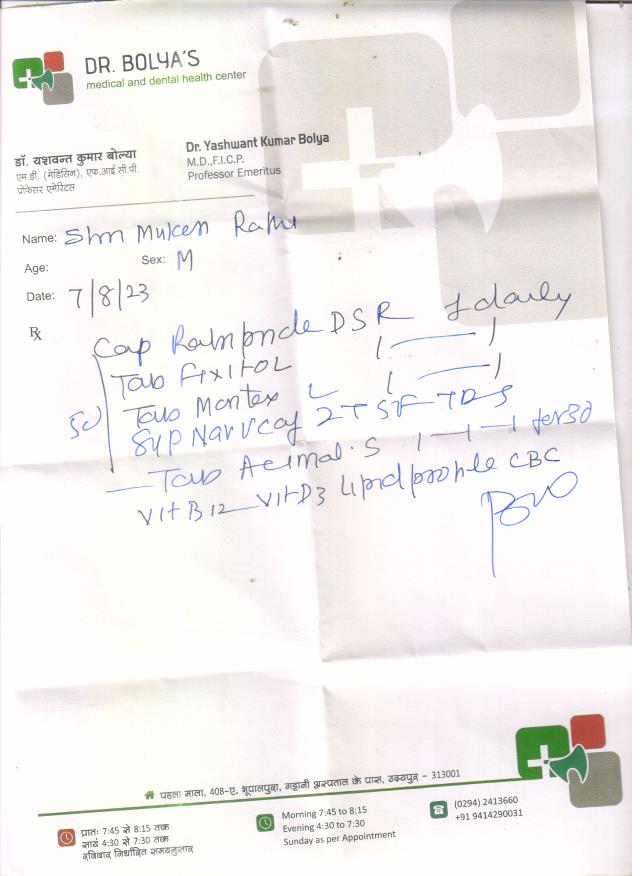 DR. BOLYA'S
medical and dental health center
डॉ. यशवन्त कुमार बोल्या
एम.डी. (मेडिसिन), एफ.आई.सी.पी.
प्रोफेसर एमेरिटस
Dr. Yashwant Kumar Bolya
M.D.,F.I.C.P.
Professor Emeritus
Name: Shri Mukesh
Age:
Sex: M
Date: 7/8/23
℞
Cap DSR 1 daily
Tab 1 1
Tab Montex 1 1
Syp 2TSF TDS
Tab 1-1-1
Vit B12 Vit D3 Lipid profile CBC
पहला माला, 408-ए, भूपालपुरा, गट्टानी अस्पताल के पास, उदयपुर - 313001
प्रातः 7:45 से 8:15 तक
सायं 4:30 से 7:30 तक
रविवार निर्धारित समयनुसार
Morning 7:45 to 8:15
Evening 4:30 to 7:30
Sunday as per Appointment
(0294) 2413660
+91 9414290031